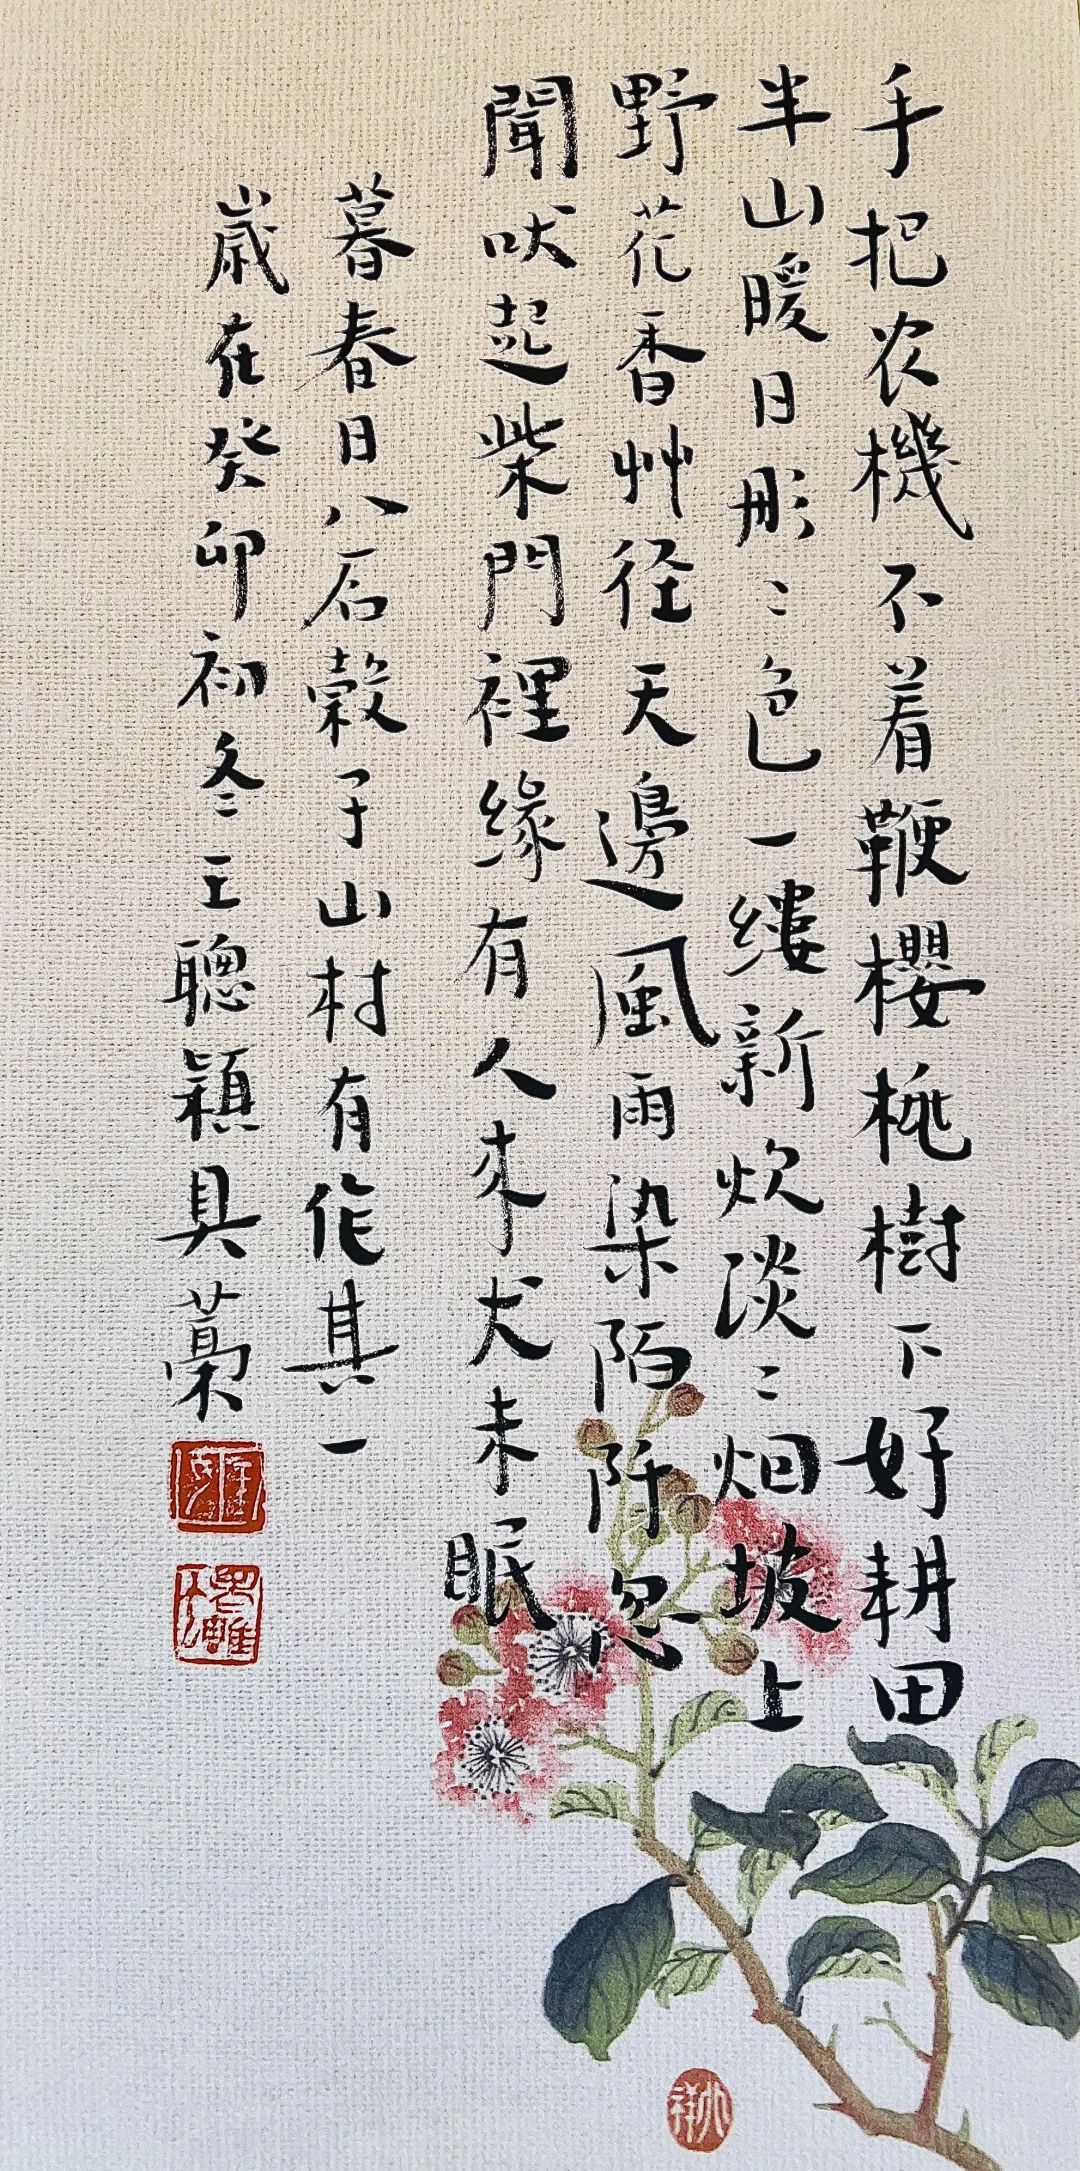 手把农機不着鞭櫻桃樹下好耕田
半山暖日彤〻色一缕新炊淡〻烟坡上
野花香艸径天邊風雨染陌阡忽
聞吠起柴門裡緣有人来犬未眠
暮春日八石穀于山村有作其一
歲在癸卯初冬王聰穎具藁